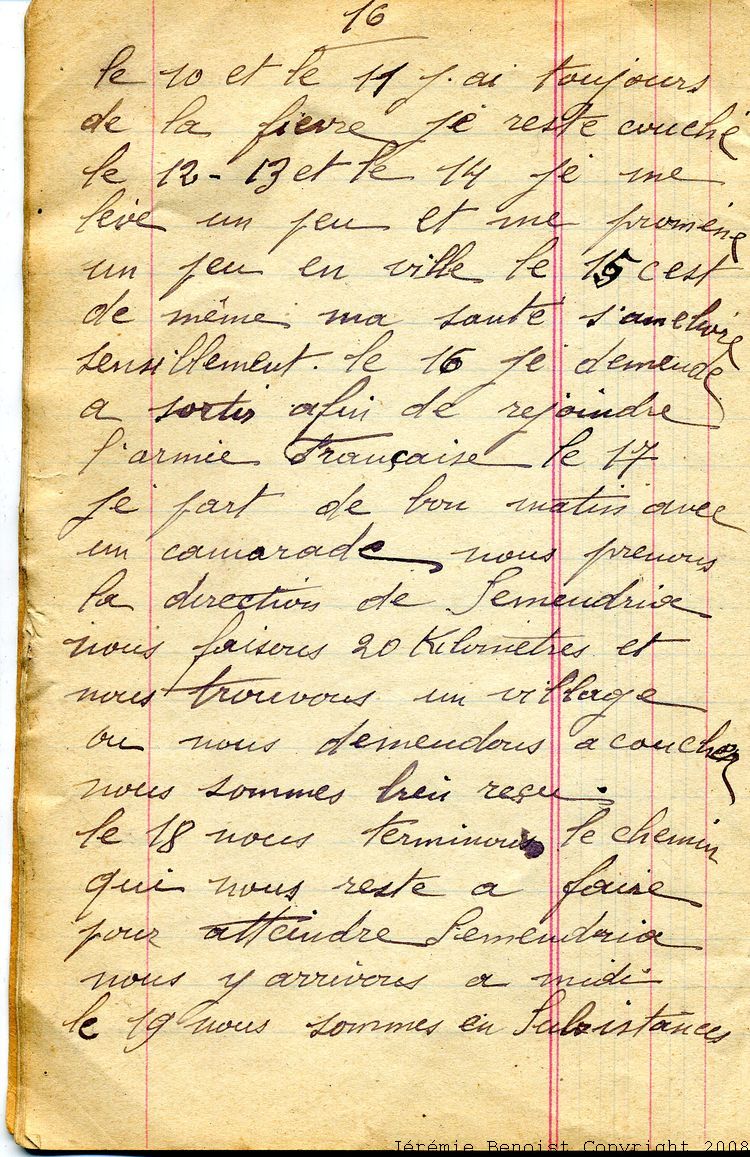 16
le 10 et le 11 j'ai toujours
de la fievre je reste couché
le 12 - 13 et le 14 je me
lève un peu et me promène
un peu en ville le 15 c'est
de même ma santé s'ameliore
sensillement. le 16 je demende
a sortir afin de rejoindre
l'armie Française le 17
je part de bon matin avec
un camarade nous prenons
la direction de Semendria
nous faisons 20 Kilomètres et
nous trouvons un village
ou nous demendons a coucher
nous sommes bien reçu.
le 18 nous terminons le chemin
qui nous reste a faire
pour atteindre Semendria
nous y arrivons a midi
le 19 nous sommes en Subsistances
Jérémie Benoist Copyright 2008